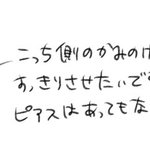 こっち側のかみのけ
すっきりさせたいです
ピアスはあってもな